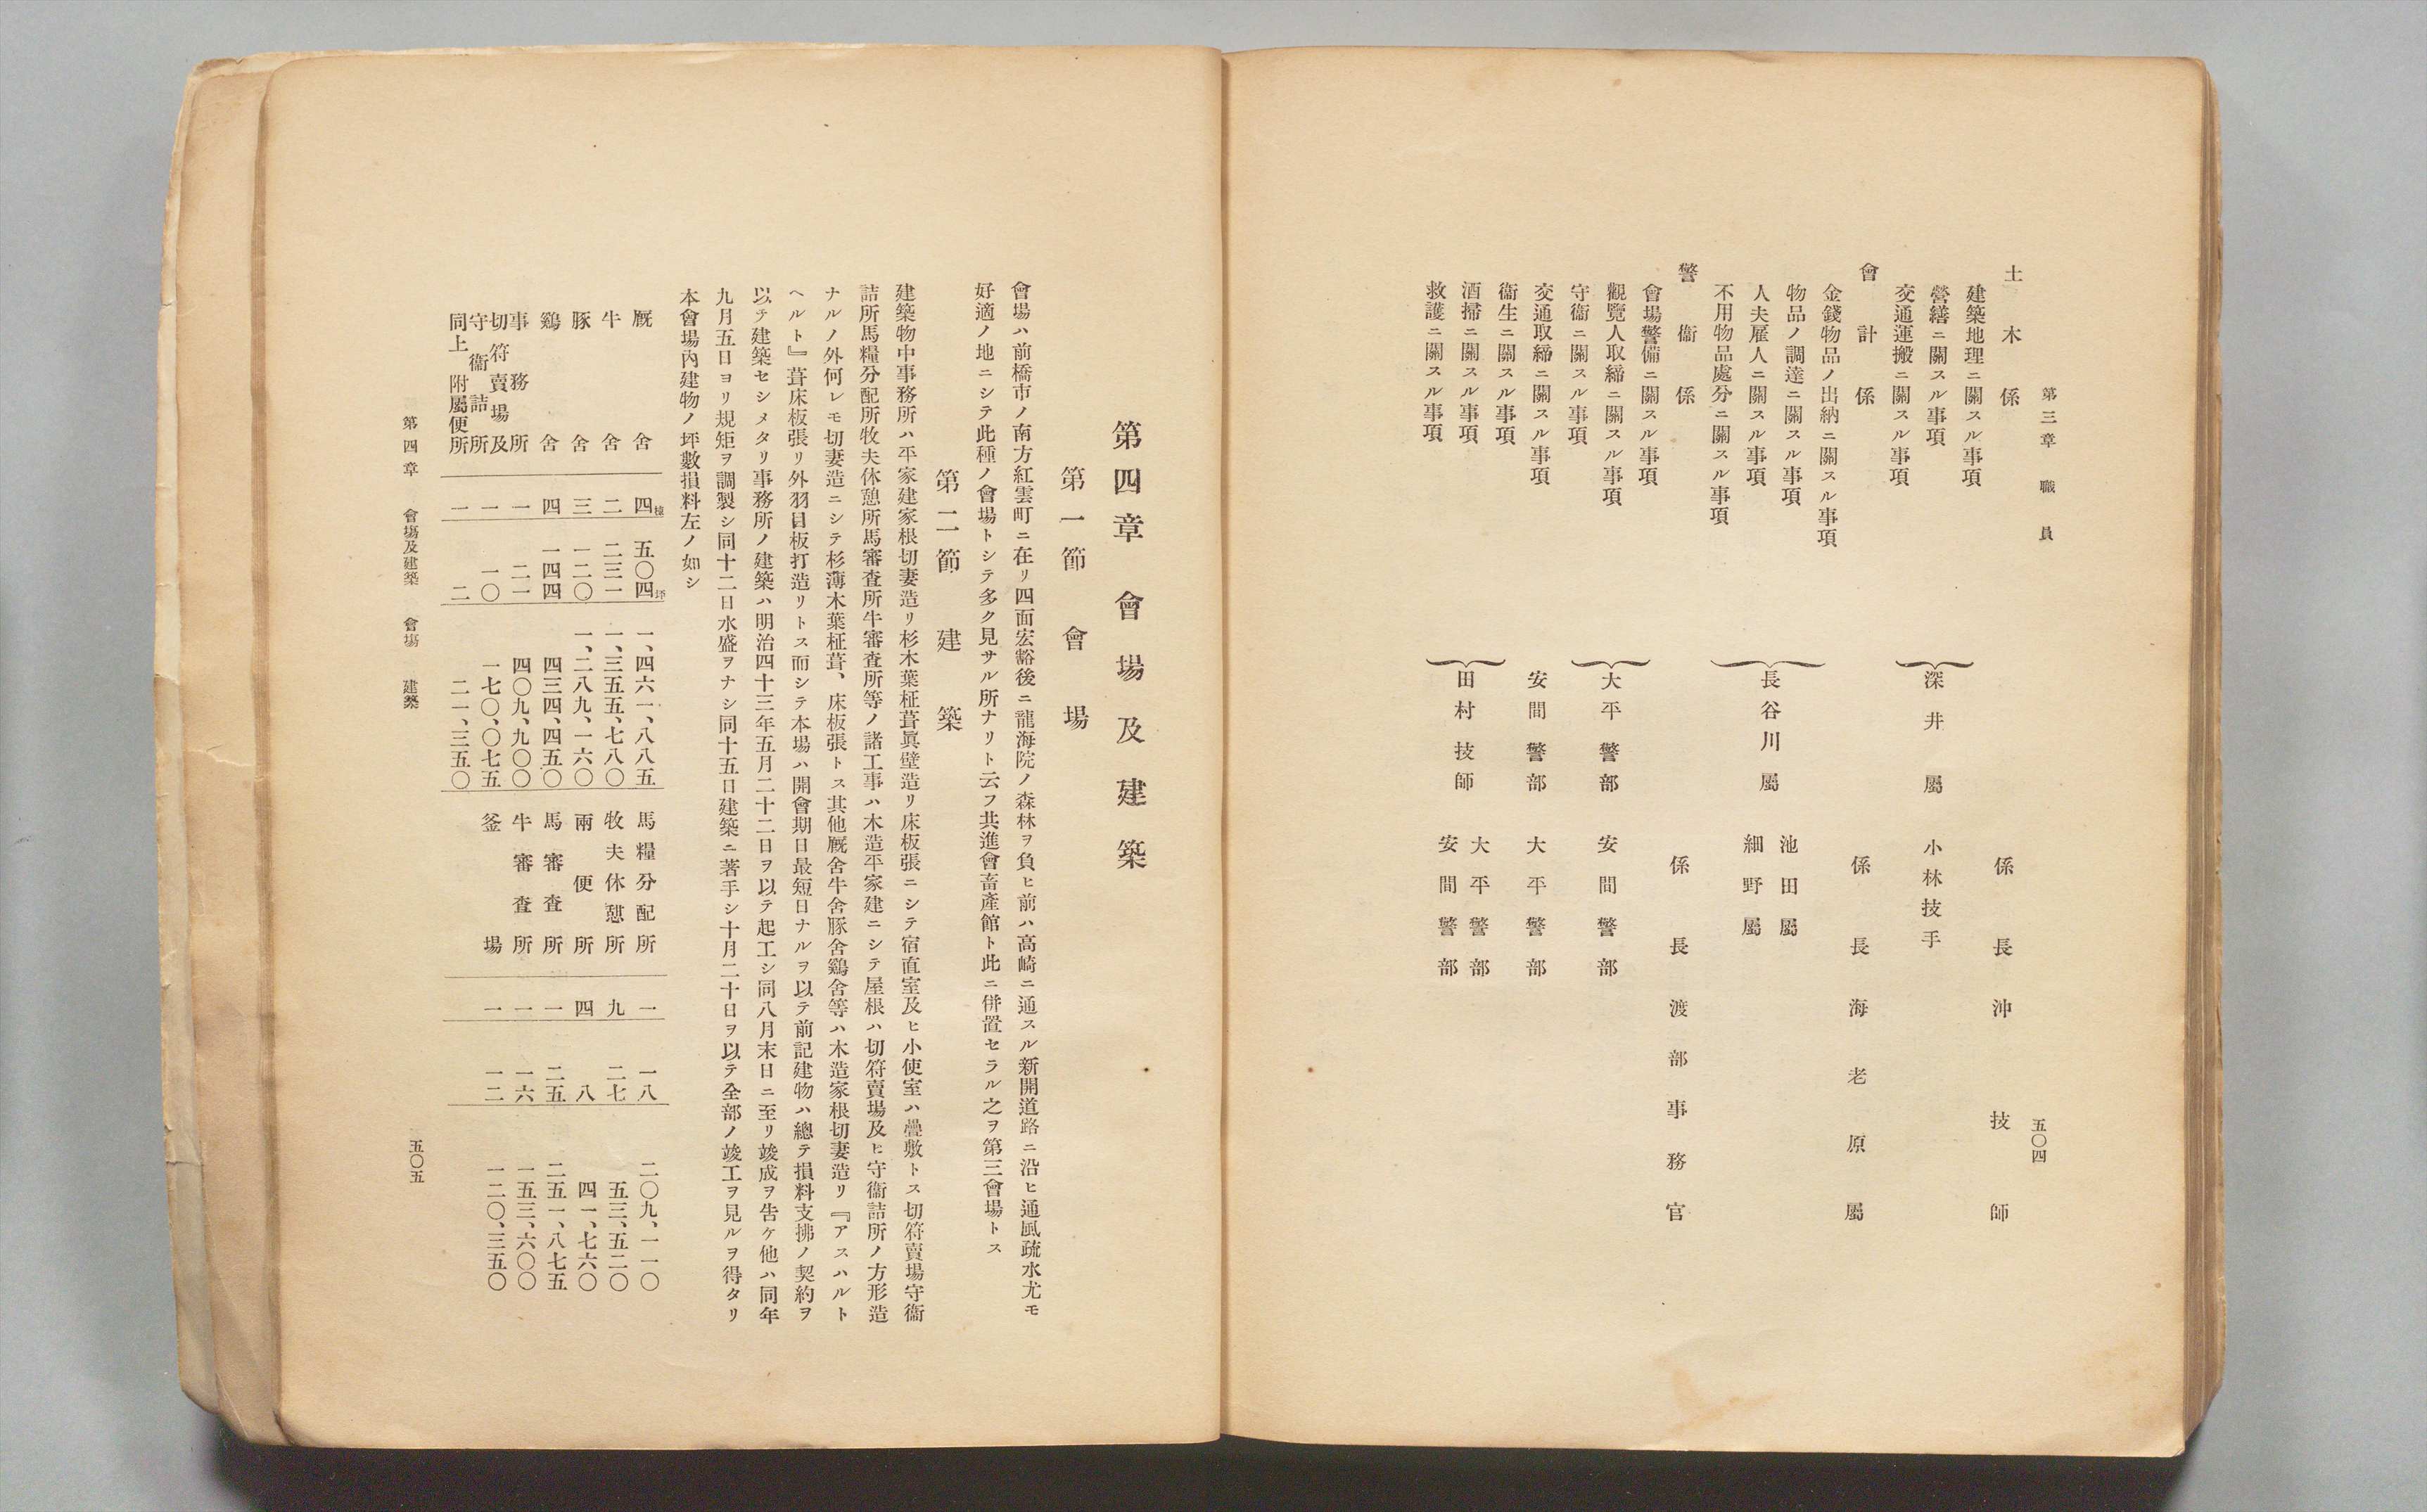 第三章　職員
五〇四
土木係　係長　沖技師
建築地理ニ關スル事項
營繕ニ關スル事項　深井屬　小林技手
交通運搬ニ關スル事項
會計係　係長　海老原屬
金錢物品ノ出納ニ關スル事項
物品ノ調達ニ關スル事項　池田屬
人夫雇人ニ關スル事項　長谷川屬　細野屬
不用物品處分ニ關スル事項
警衞係　係長　渡部事務官
會場警備ニ關スル事項
觀覽人取締ニ關スル事項　大平警部　安間警部
守衞ニ關スル事項
交通取締ニ關スル事項　安間警部　大平警部
衞生ニ關スル事項
酒掃ニ關スル事項　田村技師　大平警部
救護ニ關スル事項　安間警部
第四章　會場及建築
第一節　會場
會場ハ前橋市ノ南方紅雲町ニ在リ四面宏豁後ニ龍海院ノ森林ヲ負ヒ前ハ高崎ニ通スル新開道路ニ沿ヒ通風疏水尤モ
好適ノ地ニシテ此種ノ會場トシテ多ク見サル所ナリト云フ共進會畜產館ト此ニ併置セラル之ヲ第三會場トス
第二節　建築
建築物中事務所ハ平家建家根切妻造リ杉木葉柾葺眞壁造リ床板張ニシテ宿直室及ヒ小使室ハ疊敷トス切符賣場守衞
詰所馬糧分配所牧夫休憩所馬審査所牛審査所等ノ諸工事ハ木造平家建ニシテ屋根ハ切符賣場及ヒ守衞詰所ノ方形造
ナルノ外何レモ切妻造ニシテ杉薄木葉柾葺、床板張トス其他厩舍牛舍豚舍鷄舍等ハ木造家根切妻造リ『アスハルト
ヘルト』葺床板張リ外羽目板打造リトス而シテ本場ハ開會期日最短日ナルヲ以テ前記建物ハ總テ損料支拂ノ契約ヲ
以テ建築セシメタリ事務所ノ建築ハ明治四十三年五月二十二日ヲ以テ起工シ同八月末日ニ至リ竣成ヲ告ケ他ハ同年
九月五日ヨリ規矩ヲ調製シ同十二日水盛ヲナシ同十五日建築ニ著手シ十月二十日ヲ以テ全部ノ竣工ヲ見ルヲ得タリ
本會場內建物ノ坪數損料左ノ如シ
厩舍　四棟　五〇四坪　一、四六一、八八五　馬糧分配所　一　一八　二〇九、一一〇
牛舍　二　二三一　一、三五五、七八〇　牧夫休憩所　九　二七　五三、五二〇
豚舍　三　一二〇　一、二八九、一六〇　兩便所　四　八　四一、七六〇
鷄舍　四　一四四　四三四、四五〇　馬審査所　一　二五　二五一、八七五
事務所　一　二一　四〇九、九〇〇　牛審査所　一　一六　一五三、六〇〇
切符賣場及
守衞詰所　一　一〇　一七〇、〇七五　釜場　一　一二　一二〇、三五〇
同上附屬便所　一　二　二一、三五〇
第四章　會場及建築　會場　建築
五〇五